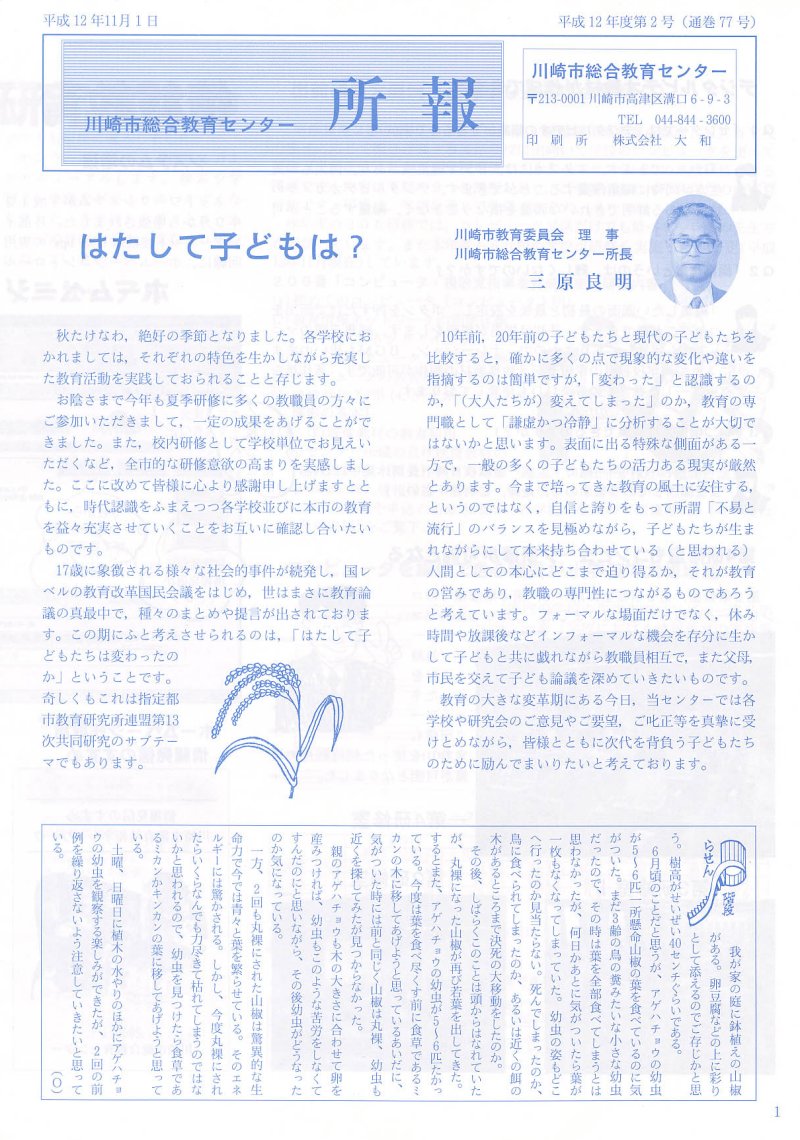 平成12年11月1日
平成12年度第2号（通巻77号）
川崎市総合教育センター 所報
川崎市総合教育センター
〒213-0001 川崎市高津区溝口6-9-3
TEL 044-844-3600
印刷所 株式会社 大和
はたして子どもは？
川崎市教育委員会 理事
川崎市総合教育センター所長
三原良明
秋たけなわ，絶好の季節となりました。各学校にお
かれましては，それぞれの特色を生かしながら充実し
た教育活動を実践しておられることと存じます。
お陰さまで今年も夏季研修に多くの教職員の方々に
ご参加いただきまして，一定の成果をあげることがで
きました。また，校内研修として学校単位でお見えい
ただくなど，全市的な研修意欲の高まりを実感しまし
た。ここに改めて皆様に心より感謝申し上げますとと
もに，時代認識をふまえつつ各学校並びに本市の教育
を益々充実させていくことをお互いに確認し合いたい
ものです。
17歳に象徴される様々な社会的事件が続発し，国レ
ベルの教育改革国民会議をはじめ，世はまさに教育論
議の真最中で，種々のまとめや提言が出されておりま
す。この期にふと考えさせられるのは，「はたして子
どもたちは変わったの
か」ということです。
奇しくもこれは指定都
市教育研究所連盟第13
次共同研究のサブテー
マでもあります。
10年前，20年前の子どもたちと現代の子どもたちを
比較すると，確かに多くの点で現象的な変化や違いを
指摘するのは簡単ですが，「変わった」と認識するの
か，「（大人たちが）変えてしまった」のか，教育の専
門職として「謙虚かつ冷静」に分析することが大切で
はないかと思います。表面に出る特殊な側面がある一
方で，一般の多くの子どもたちの活力ある現実が厳然
とあります。今まで培ってきた教育の風土に安住する，
というのではなく，自信と誇りをもって所謂「不易と
流行」のバランスを見極めながら，子どもたちが生ま
れながらにして本来持ち合わせている（と思われる）
人間としての本心にどこまで迫り得るか，それが教育
の営みであり，教職の専門性につながるものであろう
と考えています。フォーマルな場面だけでなく，休み
時間や放課後などインフォーマルな機会を存分に生か
して子どもと共に戯れながら教職員相互で，また父母，
市民を交えて子ども論議を深めていきたいものです。
教育の大きな変革期にある今日，当センターでは各
学校や研究会のご意見やご要望，ご叱正等を真摯に受
けとめながら，皆様とともに次代を背負う子どもたち
のために励んでまいりたいと考えております。
らせん
階段
我が家の庭に鉢植えの山椒
がある。卵豆腐などの上に彩り
として添えるのでご存じかと思
う。樹高がせいぜい40センチぐらいである。
6月頃のことだと思うが、アゲハチョウの幼虫
が5〜6匹一所懸命山椒の葉を食べているのに気
がついた。まだ3齢の鳥の糞みたいな小さな幼虫
だったので、その時は葉を全部食べてしまうとは
思わなかったが、何日かあとに気がついたら葉が
一枚もなくなってしまっていた。幼虫の姿もどこ
へ行ったのか見当たらない。死んでしまったのか、
鳥に食べられてしまったのか、あるいは近くの餌の
木があるところまで決死の大移動をしたのか。
その後、しばらくこのことは頭からはなれていた
が、丸裸になった山椒が再び若葉を出してきた。
するとまた、アゲハチョウの幼虫が5〜6匹たかっ
ている。今度は葉を食べつくす前に食草であるミ
カンの木に移してあげようと思っているあいだに、
気がついた時には前と同じく山椒は丸裸、幼虫も
近くを探してみたが見つからなかった。
親のアゲハチョウも木の大きさに合わせて卵を
産みつければ、幼虫もこのような苦労をしなくて
すんだのにと思いながら、その後幼虫がどうなった
のか気になっている。
一方、2回も丸裸にされた山椒は驚異的な生
命力で今では青々と葉を繁らせている。そのエネ
ルギーには驚かされる。しかし、今度丸裸にされ
たらいくらなんでも力尽きて枯れてしまうのではな
いかと思われるので、幼虫を見つけたら食草であ
るミカンかキンカンの葉に移してあげようと思って
いる。
土曜、日曜日に植木の水やりのほかにアゲハチョ
ウの幼虫を観察する楽しみができたが、2回の前
例を繰り返さないよう注意していきたいと思って
いる。
（O）
1